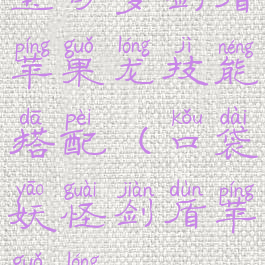 píng guǒ lóng jì néng
苹果龙技能
dā pèi kǒu dài
搭配(口袋
yāo guài jiàn dùn píng
妖怪剑盾苹
guǒ lóng